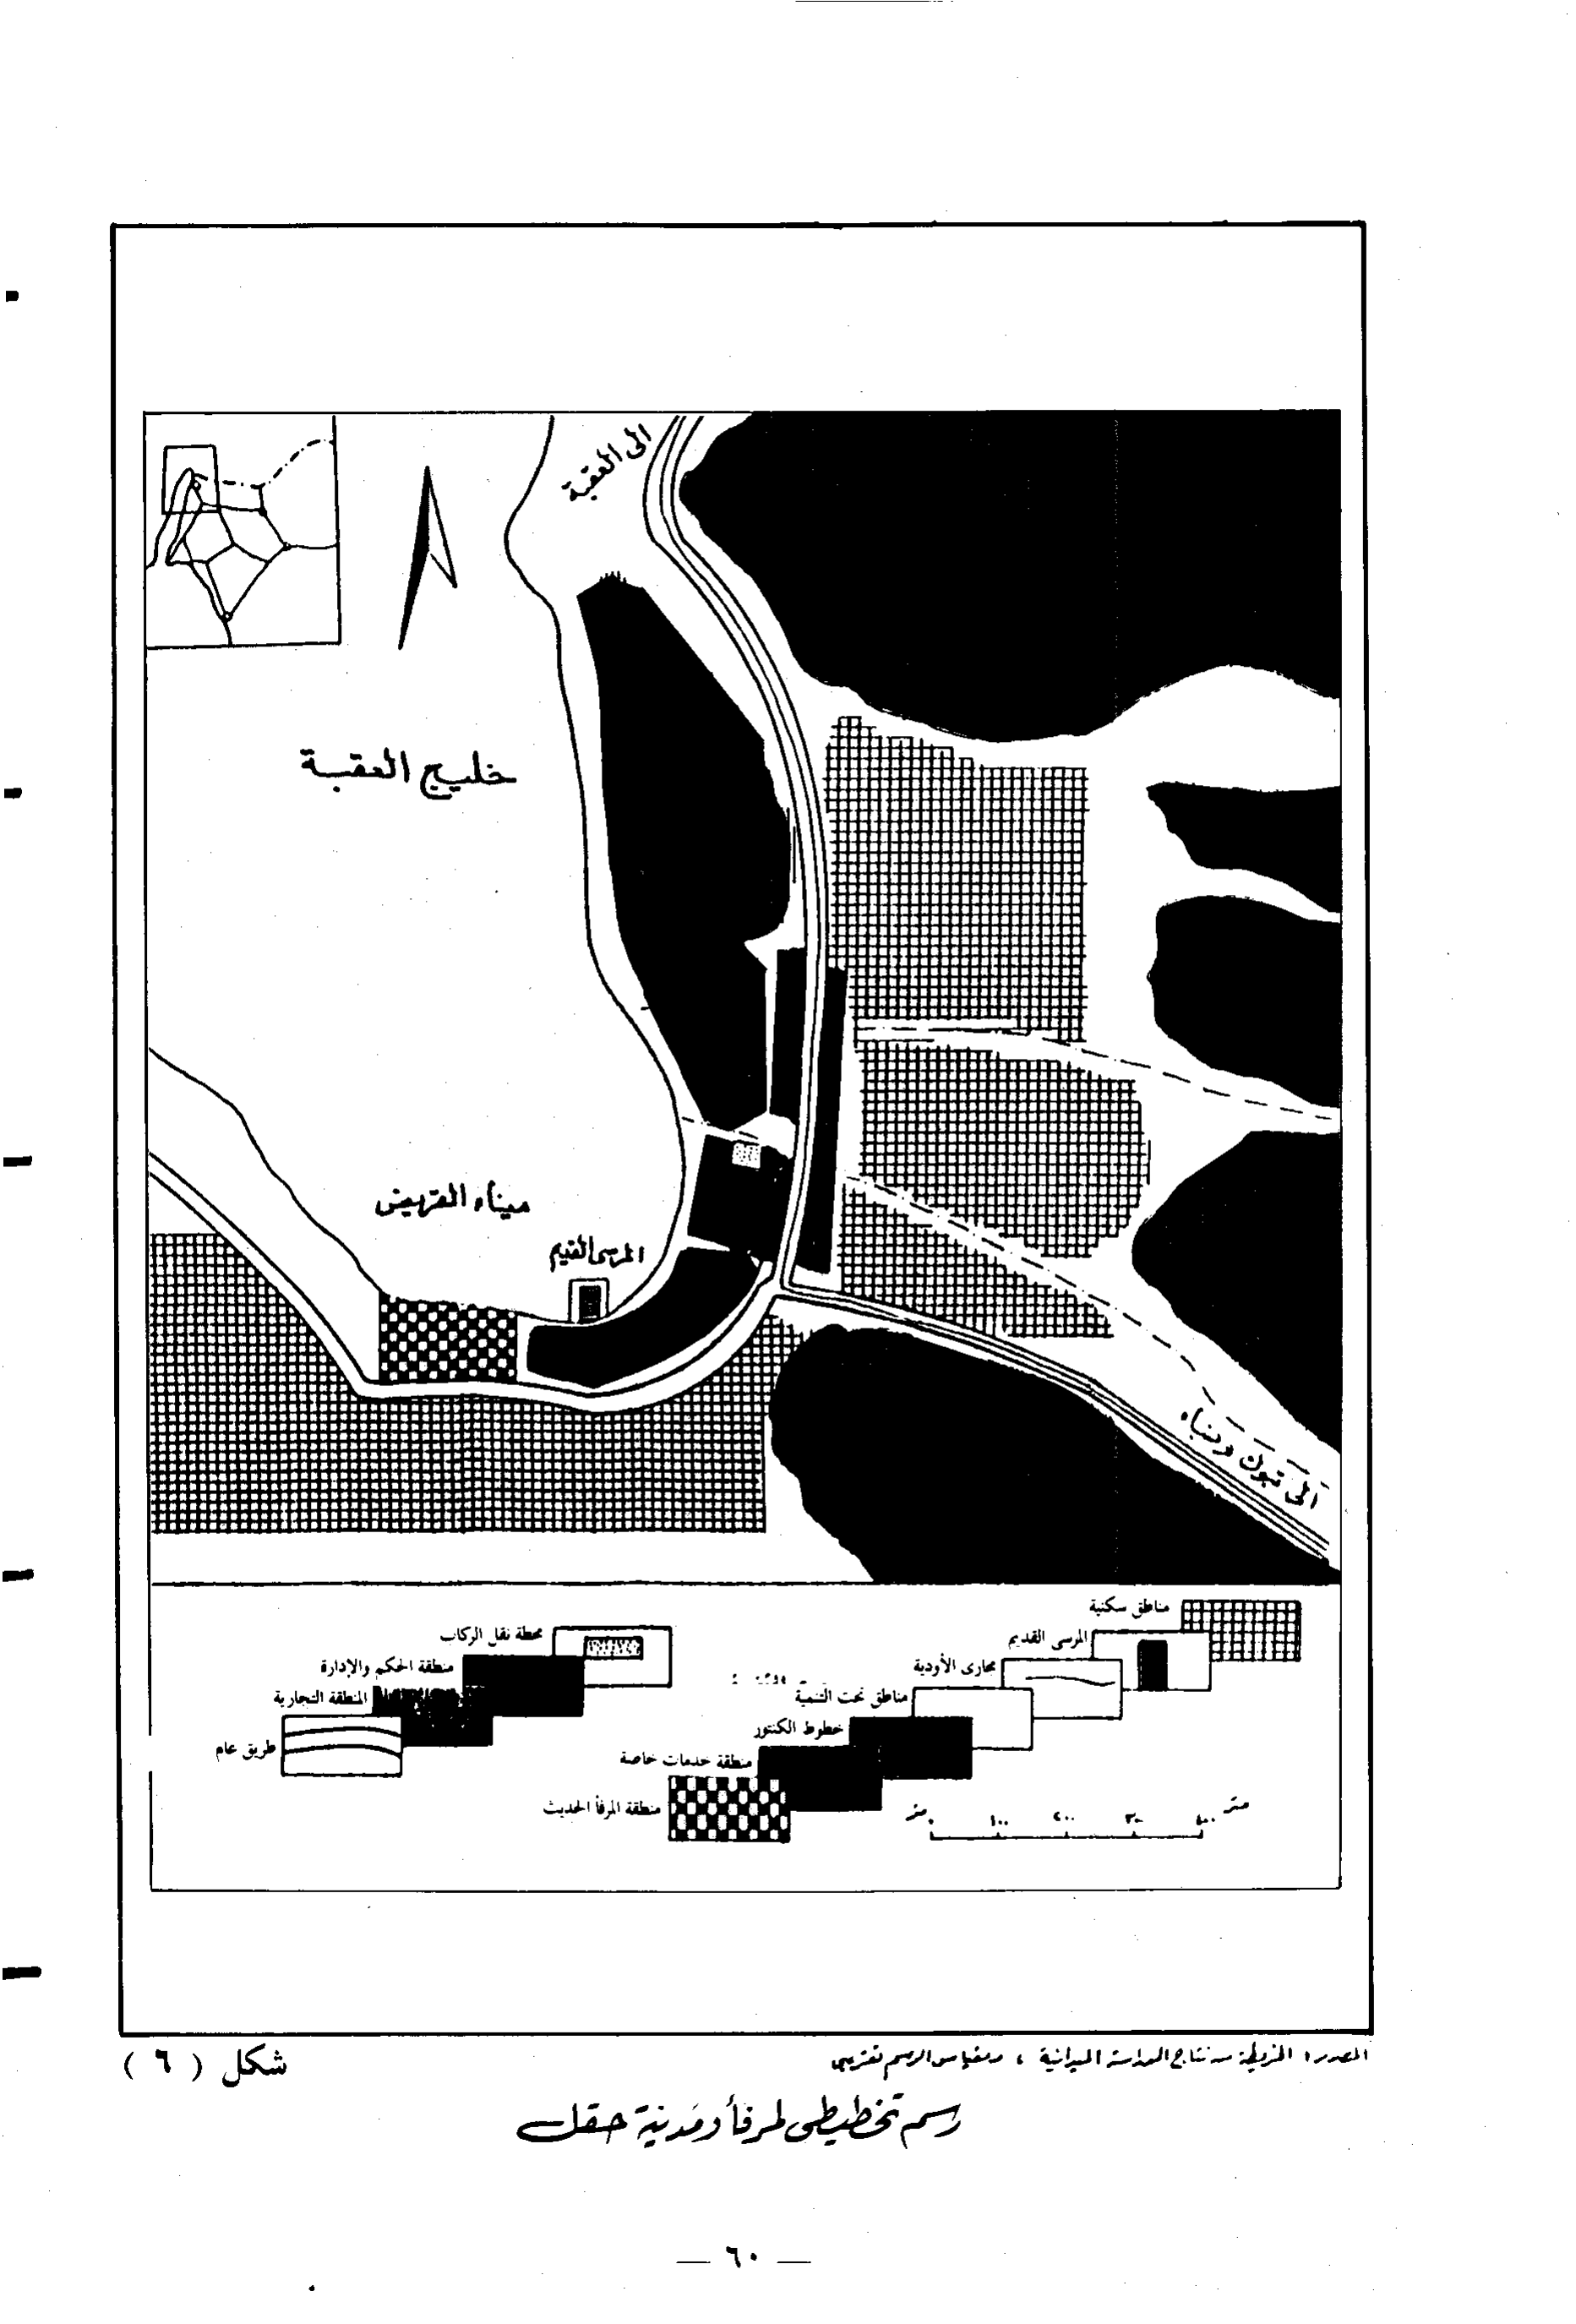 الى العقبة
خليج العقبة
ميناء القريض
المرسى القديم
الى تبوك وضباء
مناطق سكنية
المرسى القديم
مجارى الأودية
مناطق تحت التنمية
خطوط الكنتور
منطقة خدمات خاصة
منطقة المرفأ الحديث
محطة نقل الركاب
منطقة الحكم والإدارة
المنطقة التجارية
طريق عام
متر ٠ ١٠٠ ٢٠٠ ٣٠٠ ٤٠٠ متر
المصدر: الخريطة من نتاج الدراسة الميدانية ، ومقياس الرسم تقريبى
شكل ( ٦ )
رسم تخطيطى لمرفأ ومدينة حقل
— ٦٠ —